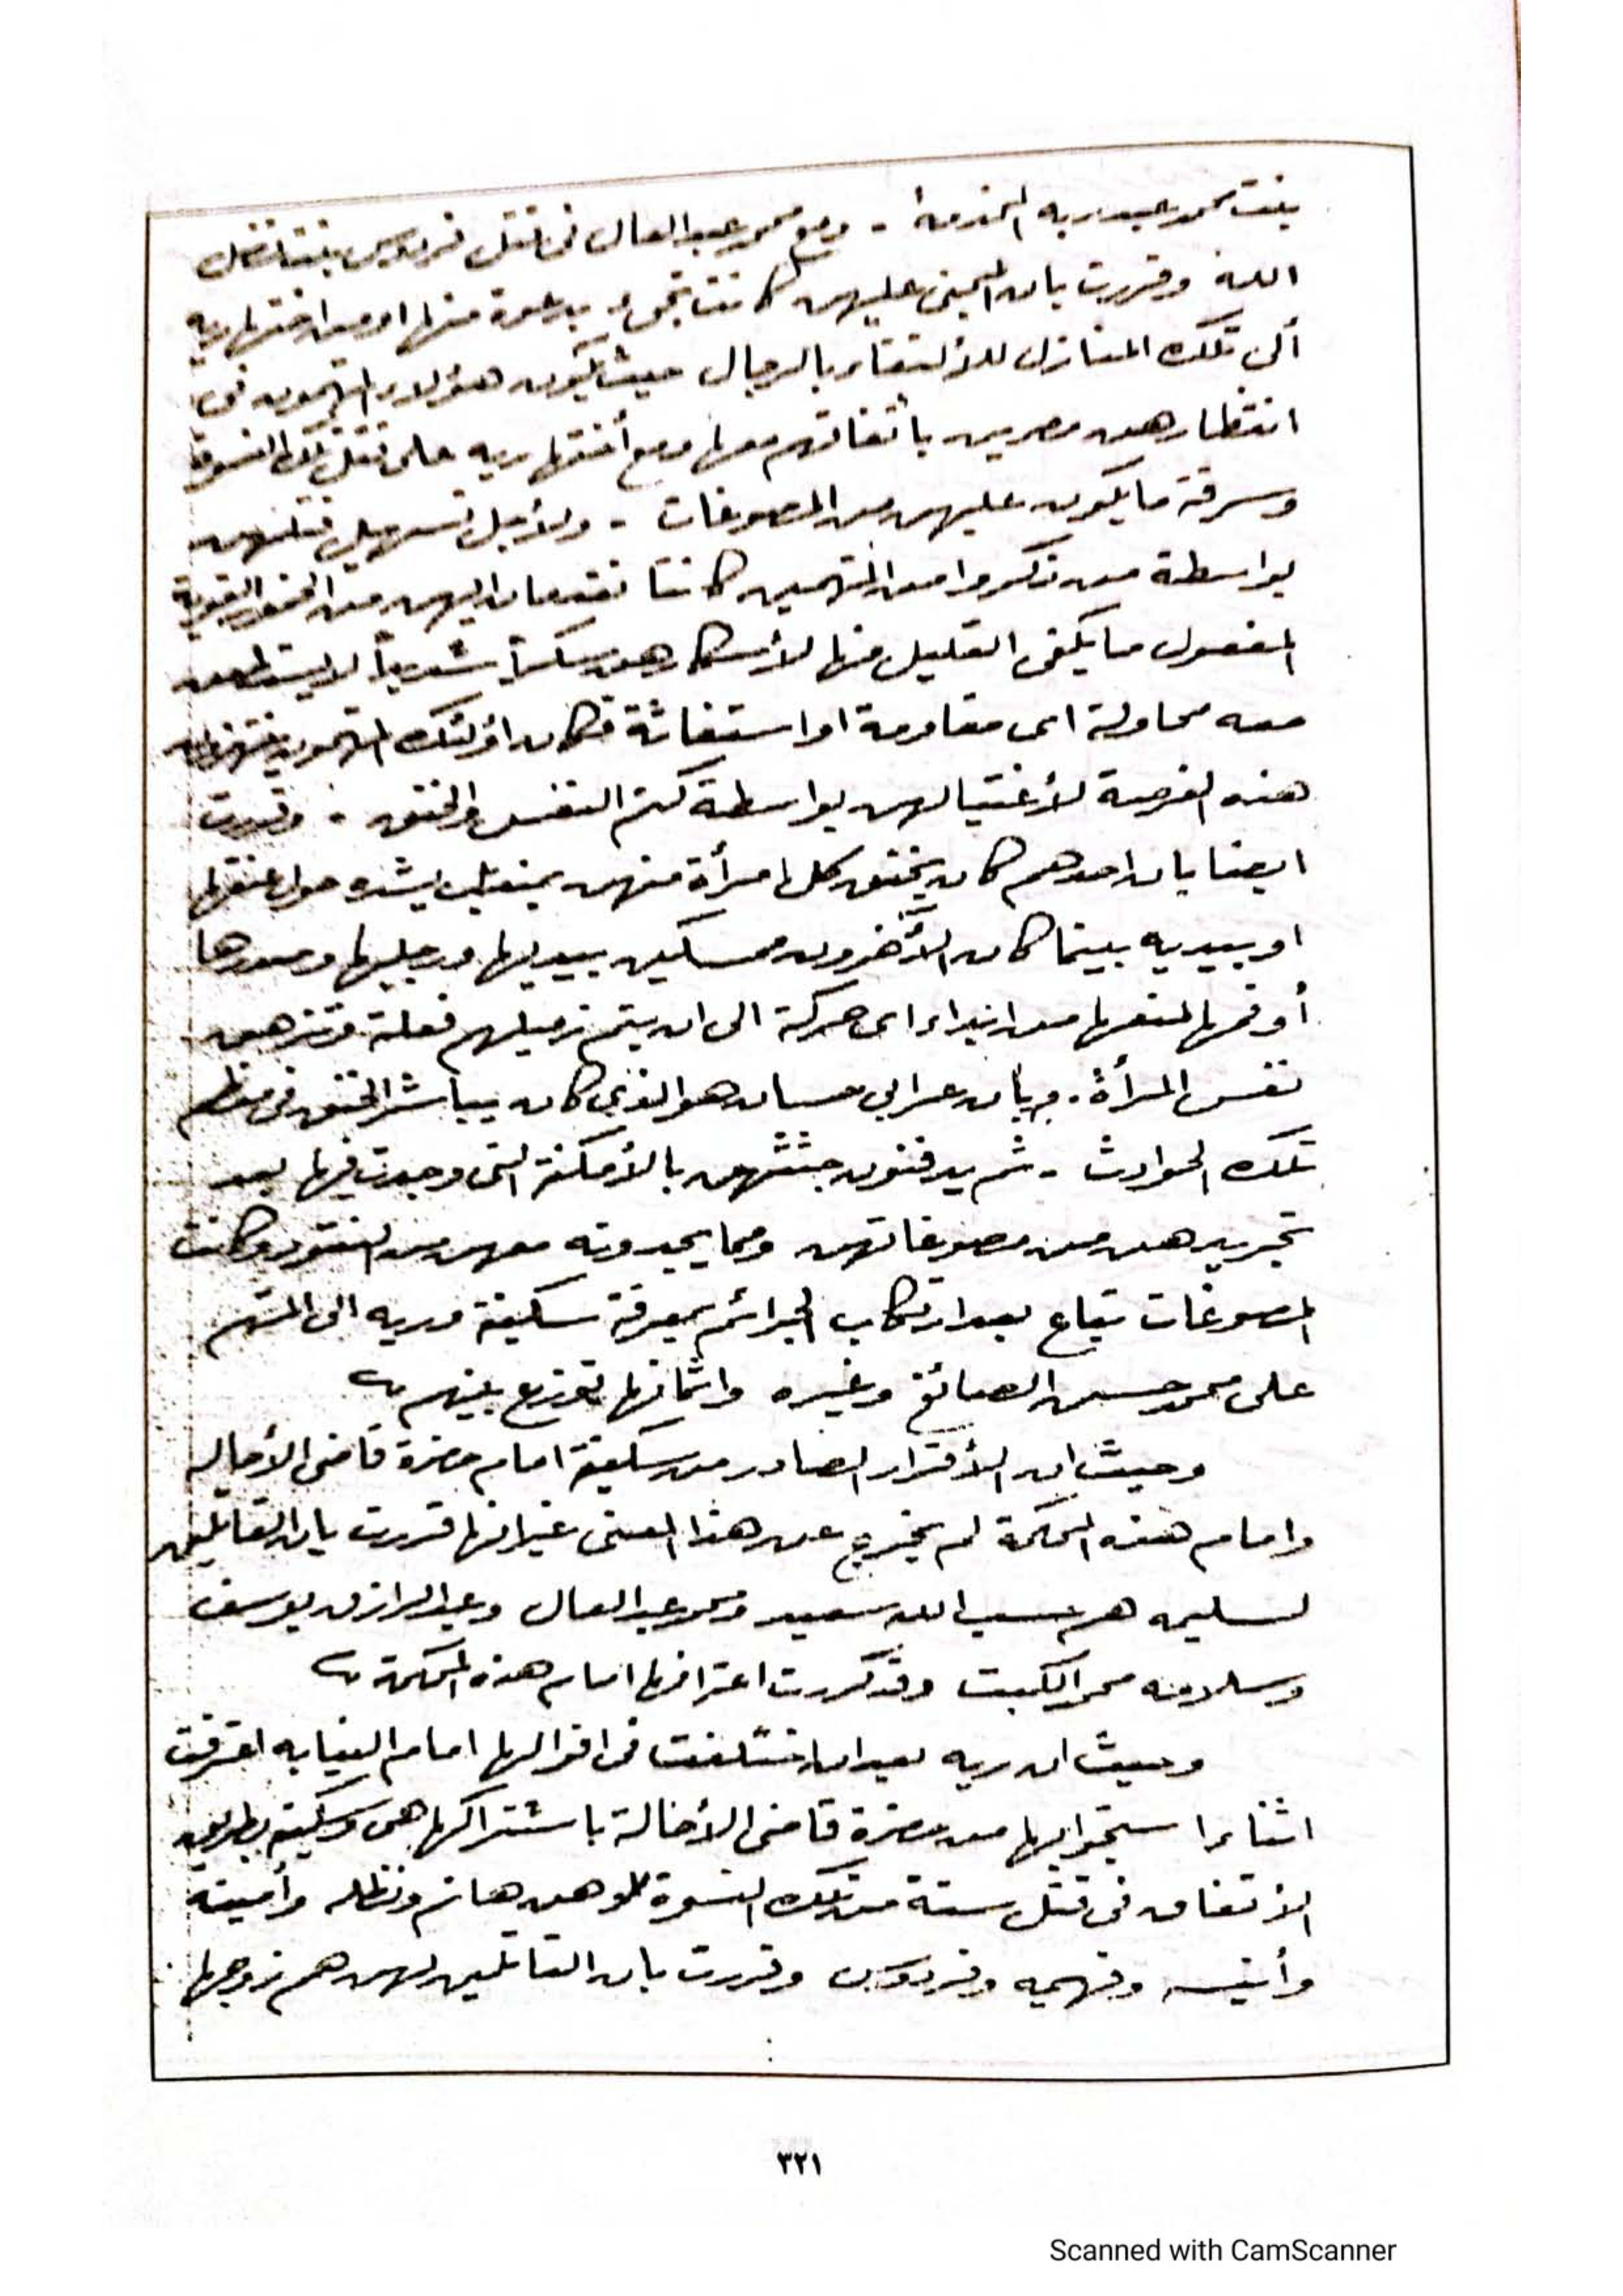 بنت محمد عبد ربه المخدمة - ومع محمد عبد العال فى قتل فردوس بنت فضل
الله وقررت بان المجنى عليهن كانت تجىء بدعوة منها او من اختها ريه
ألى تلك المنازل للالتقاء بالرجال حيث يكون هؤلاء المتهمون فى
انتظارهن مصرين باتفاقهم معها ومع أختها ريه على قتل تلك النسوة
وسرقة ما يكون عليهن من المصوغات - ولأجل تسهيل قتلهن
بواسطة من ذكروا من المتهمين كانتا تقدمان اليهن من الخمور القوية
المفعول ما يكفى القليل منها لأسكارهن سكراً شديداً لا يستطعن
معه محاولة اى مقاومة او استغاثة فكان اولئك المتهمون ينتهزون
هذه الفرصة لأغتيالهن بواسطة كتم النفس والخنق - وقررت
ايضا بان احدهم كان يخنق كل امرأة منهن بمنديل يشده حول عنقها
او بيديه بينما كان الأخرون ممسكين بيديها ورجليها وصدرها
أو فمها لمنعها من ابداء اى حركة الى ان يتم زميلهم فعلة وتزهق
نفس المرأة - وبأن عرابى حسان هو الذى كان يباشر الخنق فى معظم
تلك الحوادث - ثم يدفنون جثثهن بالأمكنة التى وجدت فيها بعد
تجريدهن من مصوغاتهن ومما يجدونه معهن من النقود وكانت
المصوغات تباع بعد ارتكاب الجرائم بمعرفة سكينة وريه الى المتهم
على محمد حسن الصائغ وغيره واثمانها توزع بينهم
وحيث ان الأقرار الصادر من سكينة امام حضرة قاضى الأحاله
وامام هذه المحكمة لم يخرج عن هذا المعنى غير انها قررت بان القاتلين
لسليمه هم حسب الله سعيد ومحمد عبد العال وعبد الرازق يوسف
وسلامه محمد الكبت وقد كررت اعترافها امام هذه المحكمة
وحيث ان ريه بعد ان اختلفت فى اقوالها امام النيابه اعترفت
اثناء استجوابها من حضرة قاضى الأحالة باشتراكها هى وسكينه بطريق
الاتفاق فى قتل ستة من تلك النسوة وهن هانم ونظله وأمينه
وأنيسه وفهيمه وفردوس وقررت بان القاتلين لهن هم زوجها
٣٢١
Scanned with CamScanner